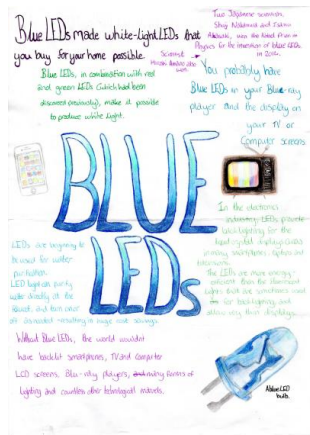 Blue LEDs made white-light LEDs that
you buy for your home possible.
Two Japanese scientists,
won the Nobel Prize in
Physics for the invention of blue LEDs
in 2014.
Scientist
Blue LEDs, in combination with red
and green LEDs (which had been
discovered previously), make it possible
to produce white light.
You probably have
Blue LEDs in your Blue-ray
player and the display on
your TV or
Computer screens
BLUE
LEDs
In the electronics
industry, LEDs provide
back lighting for the
liquid crystal displays (LCDs)
in many smartphones, laptops and
televisions.
The LEDs are more energy-
efficient than the fluorescent
lights that are sometimes used
for back lighting and
allow very thin displays.
LEDs are beginning to
be used for water
purification.
LED light can purify
water directly at the
and then turn
off as needed - resulting in huge cost savings.
Without Blue LEDs, the world wouldn't
have backlit smartphones, TV and computer
LCD screens, Blu-ray players, many forms of
lighting and countless other technological marvels.
A blue LED
bulb.